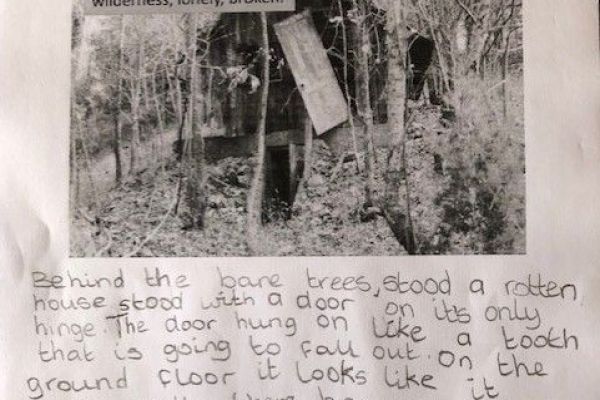 wilderness, lonely, broken.
Behind the bare trees, stood a rotten
house stood with a door on it's only
hinge. The door hung on like a tooth
that is going to fall out. On the
ground floor it looks like it